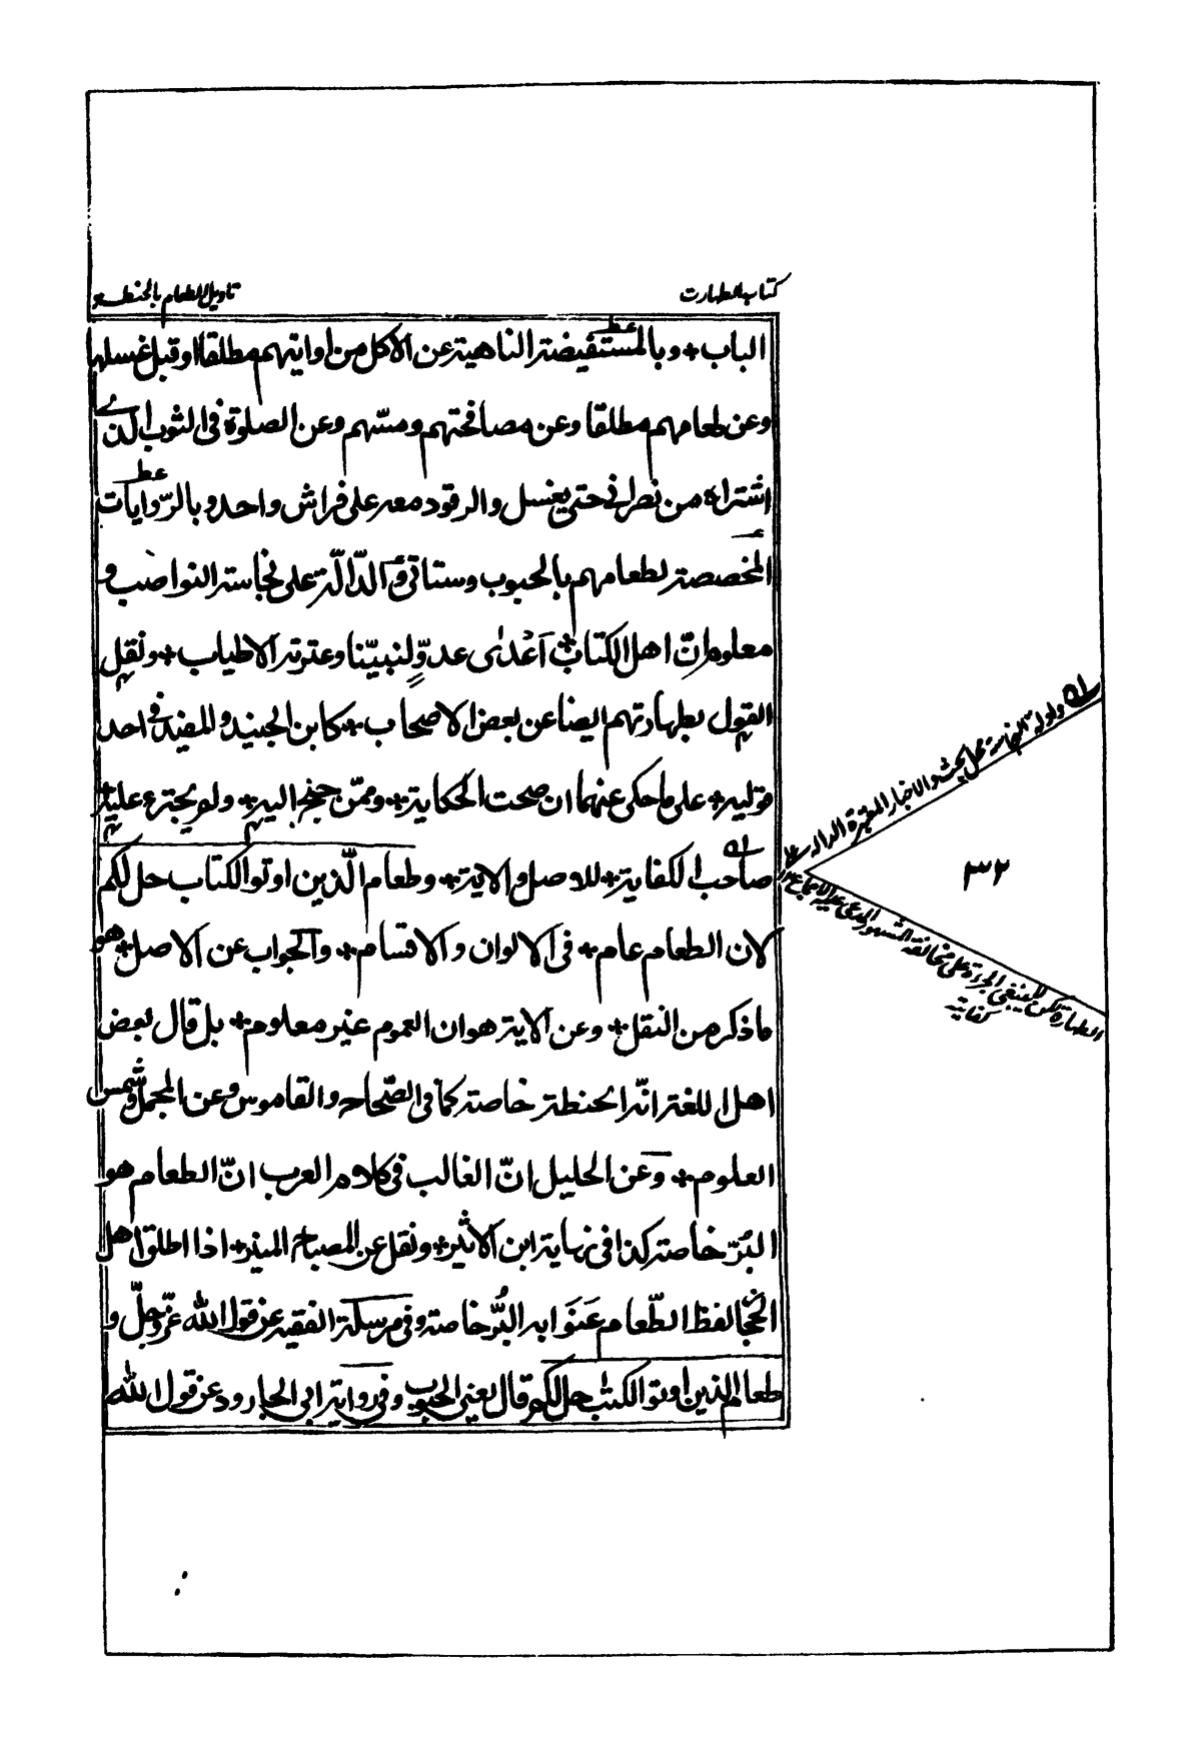 كتاب الطهارت
تاويل الطعام بالحنطة
الباب + وبالمستفيضة الناهية عن الاكل من اوانيهم مطلقا او قبل غسلها
وعن طعامهم مطلقا وعن مصافحتهم ومسّهم وعن الصلوة فى الثوب الذى
اشتراه من نصرانى حتى يغسل والرقود معه على فراش واحد وبالرّوايات
المخصصة لطعامهم بالحبوب وستاتى والدّالّة على نجاسة النواصب و
معلوم انّ اهل الكتاب اعدى عدوّ لنبيّنا وعترته الاطياب + ونقل
القول بطهارتهم ايضا عن بعض الاصحاب + كابن الجنيد والمفيد فى احد
قوليه + على ما حكى عنهما ان صحت الحكاية + وممّن جنح اليه + ولم يجترء عليه
صاحب الكفاية + للاصل والاية + وطعام الّذين اوتوا الكتاب حل لكم
لان الطعام عام + فى الالوان والاقسام + والجواب عن الاصل + هو
ما ذكر من النقل + وعن الاية هو ان العموم غير معلوم + بل قال بعض
اهل اللغة انّه الحنطة خاصة كما فى الصّحاح والقاموس وعن المجمل وشمس
العلوم + وعن الخليل انّ الغالب فى كلام العرب انّ الطعام هو
البُرّ خاصة كذا فى نهاية ابن الاثير + ونقل عن المصباح المنير + اذا اطلق اهل
الحجاز لفظ الطّعام عَنَوا به البُرّ خاصة وفى مرسلة الفقيه عن قول الله عزّ وجلّ و
طعام الذين اوتوا الكتب حل لكم قال يعنى الحبوب وفى رواية ابى الجارود عن قول الله
وادلة النجاسة محل بحث والاخبار المعتبرة الدالة على
۲۳۲
الطهارة لكن لا ينبغى الجراءة على مخالفة المشهور المدعى عليه الاجماع
كفاية